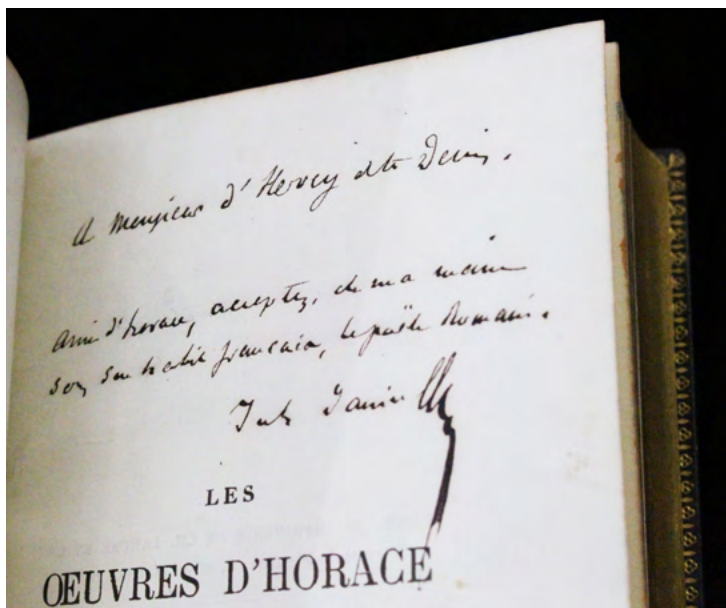 A Monsieur d'Hervey St Denis.
Ami d'horace, acceptez, de ma main
sous son habit francais, le poëte Romain.
Jules Janin
LES
ŒUVRES D'HORACE